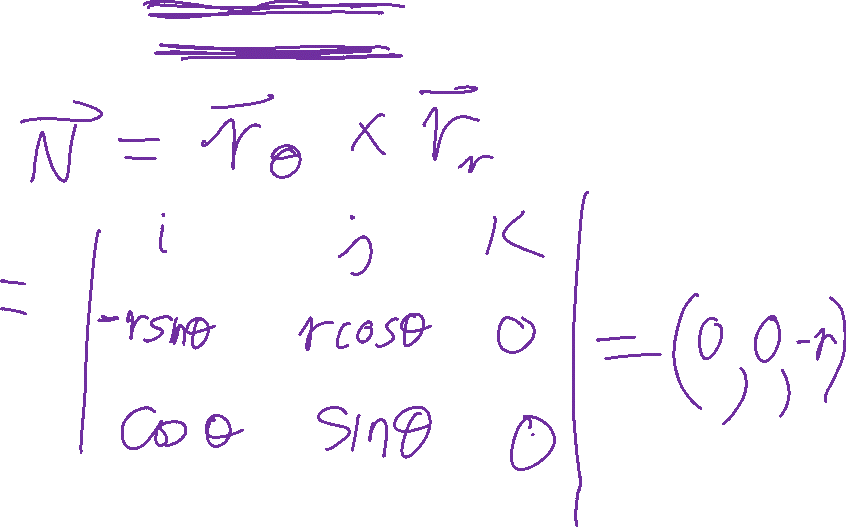 N⃗ = r⃗_θ × r⃗_r
= | i j K
-rsinθ rcosθ 0
coθ sinθ 0 | = (0, 0, -r)